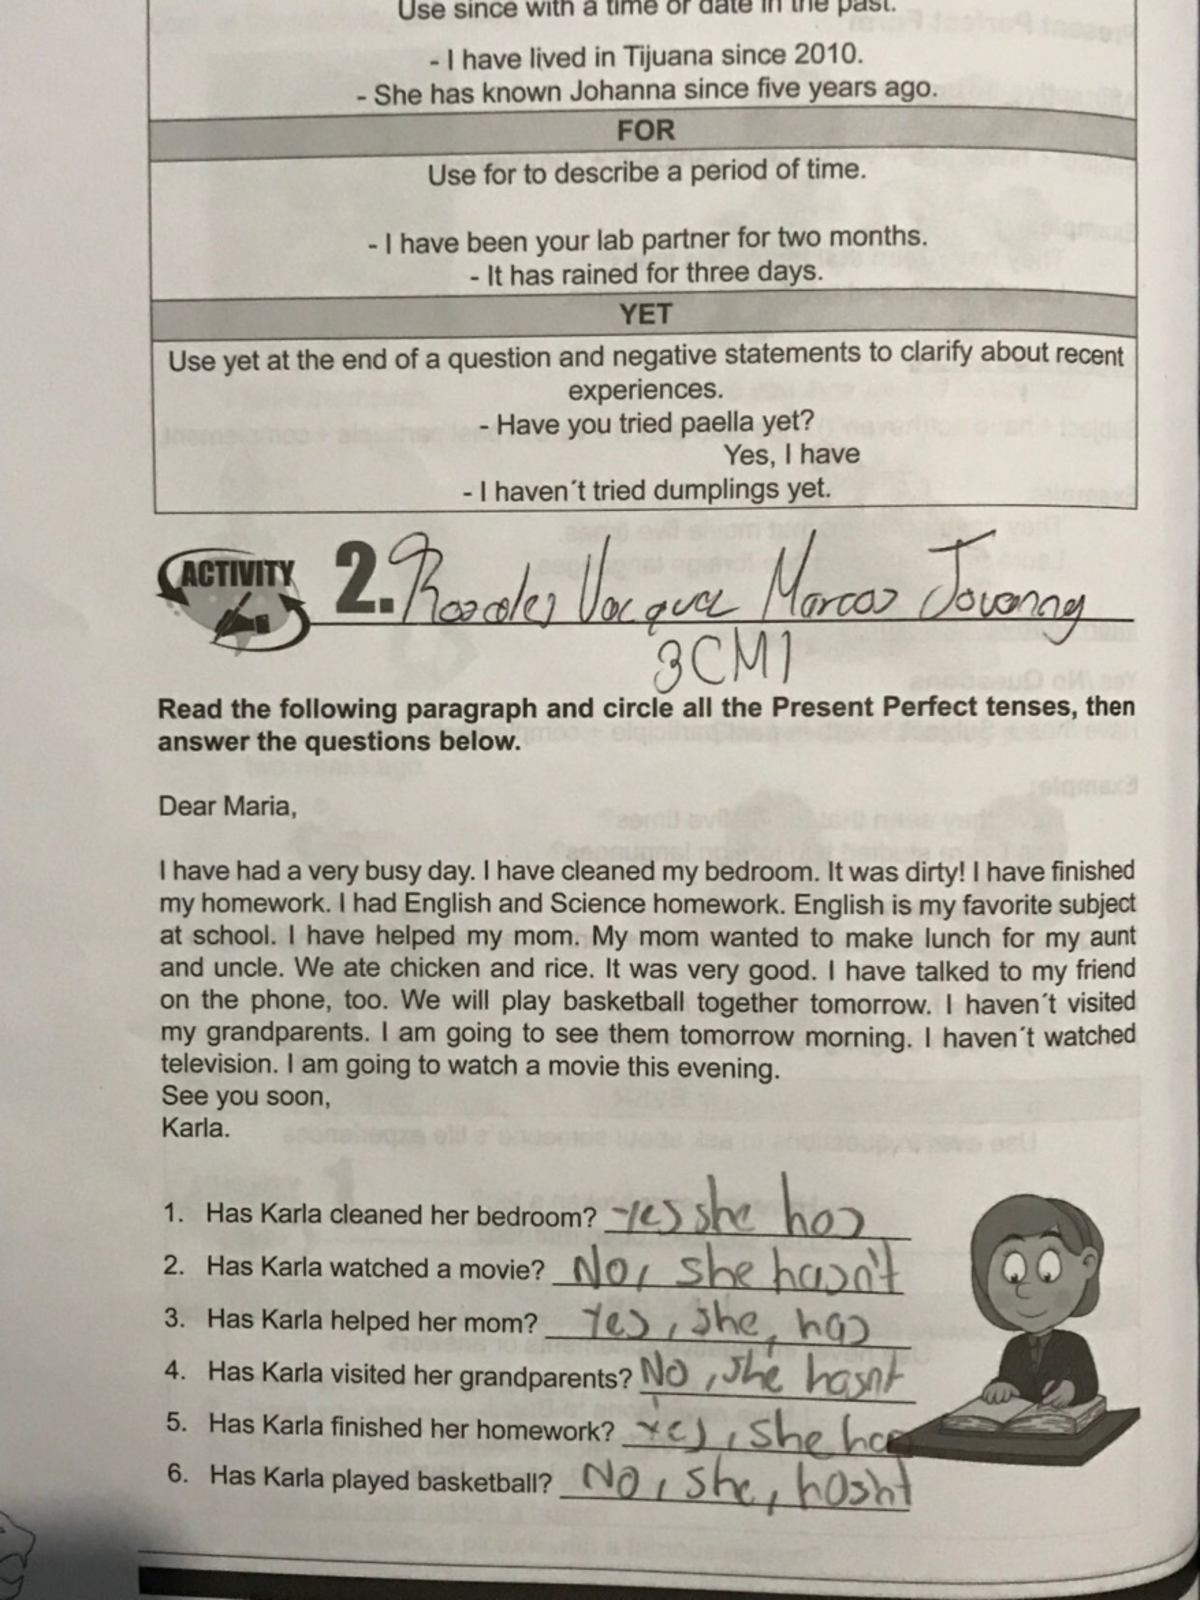 Use since with a time or date in the past.
- I have lived in Tijuana since 2010.
- She has known Johanna since five years ago.
FOR
Use for to describe a period of time.
- I have been your lab partner for two months.
- It has rained for three days.
YET
Use yet at the end of a question and negative statements to clarify about recent
experiences.
- Have you tried paella yet?
Yes, I have
- I haven´t tried dumplings yet.
ACTIVITY 2. Rosales Marcos Jovanny
3CM1
Read the following paragraph and circle all the Present Perfect tenses, then
answer the questions below.
Dear Maria,
I have had a very busy day. I have cleaned my bedroom. It was dirty! I have finished
my homework. I had English and Science homework. English is my favorite subject
at school. I have helped my mom. My mom wanted to make lunch for my aunt
and uncle. We ate chicken and rice. It was very good. I have talked to my friend
on the phone, too. We will play basketball together tomorrow. I haven´t visited
my grandparents. I am going to see them tomorrow morning. I haven´t watched
television. I am going to watch a movie this evening.
See you soon,
Karla.
1. Has Karla cleaned her bedroom? Yes she has
2. Has Karla watched a movie? No, she hasn't
3. Has Karla helped her mom? Yes, she, has
4. Has Karla visited her grandparents? No, she hasnt
5. Has Karla finished her homework? Yes, she has
6. Has Karla played basketball? No, she, hasnt